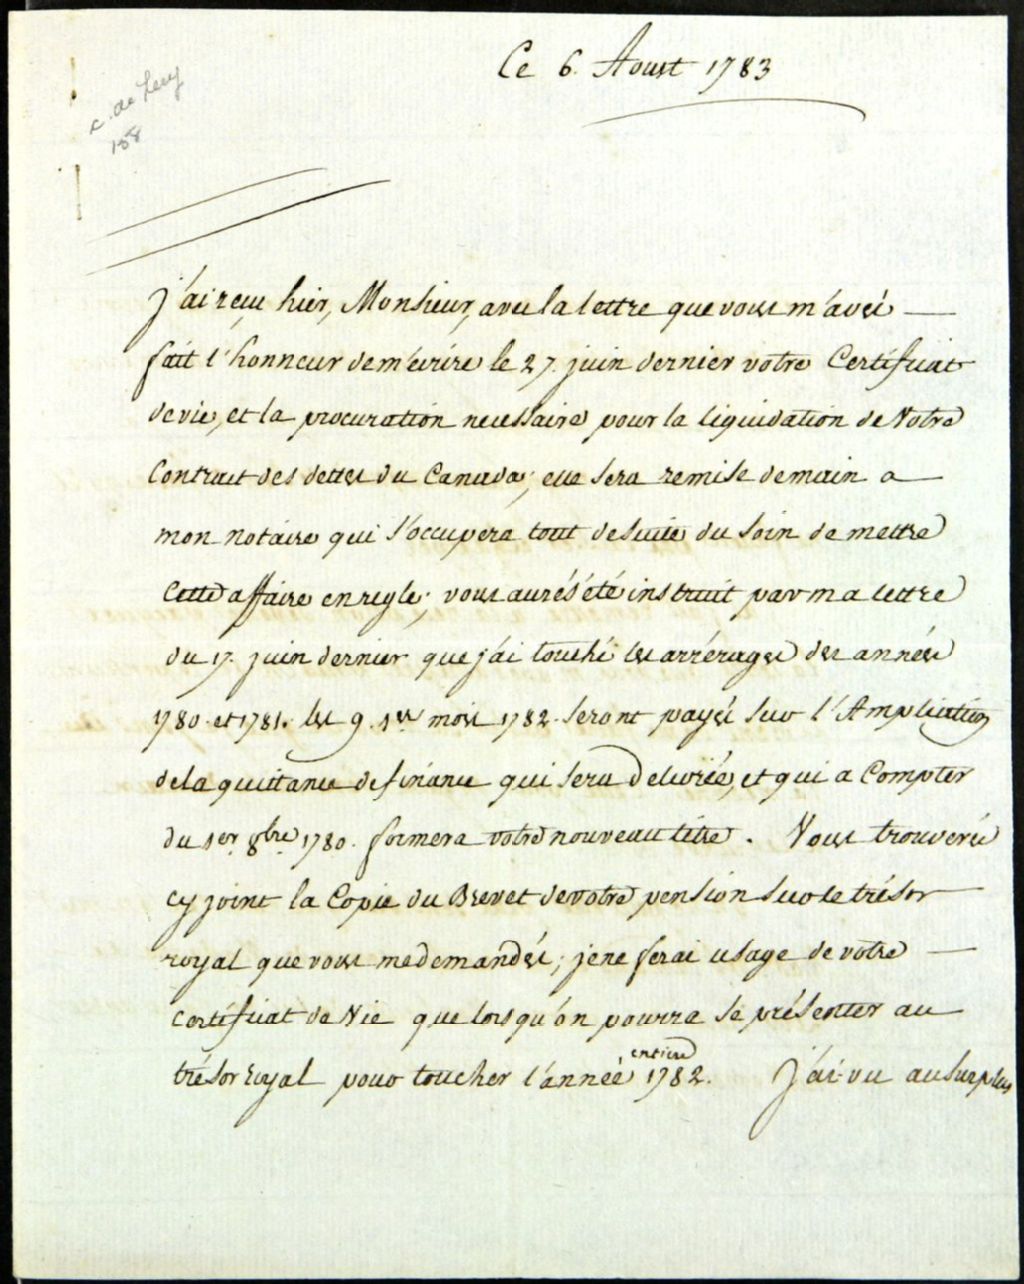 Ce 6. Aoust 1783
c. de Lery
158
J'ai reçu hier, Monsieur, avec la lettre que vous m'avés
fait l'honneur de m'écrire le 27. juin dernier votre Certificat
de vie, et la procuration necessaire pour la liquidation de Votre
Contract des dettes du Canada; elle sera remise demain a
mon notaire qui s'occupera tout de suite du soin de mettre
Cette affaire en regle; vous aurés été instruit par ma lettre
du 17. juin dernier que j'ai touché les arrérages des années
1780. et 1781. les 9. 1ers mois 1782. seront payés sur l'Ampliation
de la quittance de finance qui sera Delivrée, et qui a Compter
du 1er 8bre 1780. formera votre nouveau titre. Vous trouverés
cy joint la Copie du Brevet de votre pension sur le trésor
royal que vous me demandés; je ne ferai usage de votre
Certificat de Vie que lorsqu'on pourra se présenter au
trésor royal pour toucher l'année entiere 1782. J'ai vu au surplus